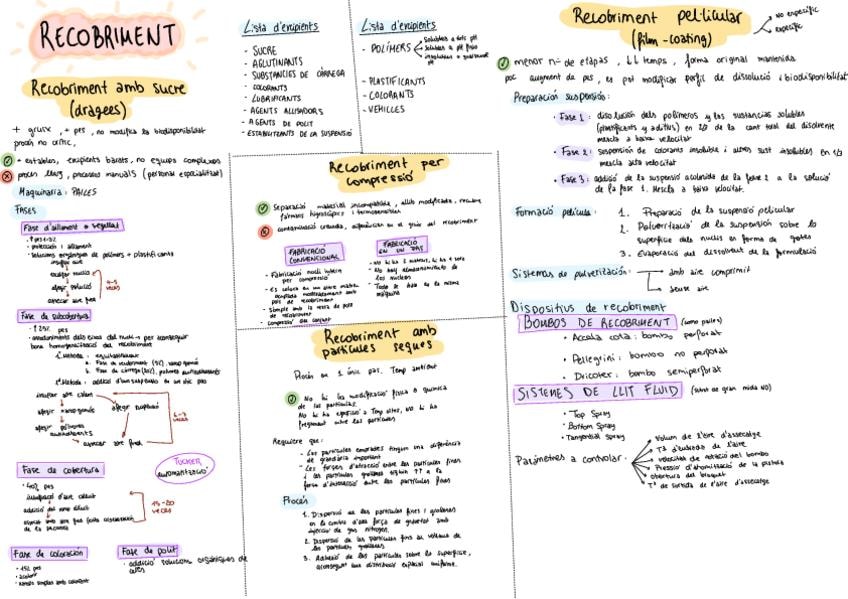 RECOBRIMENT
Recobriment amb sucre
(dragees)
+ gruix, + pes, no modifica la biodisponibilitat
procés no crític,
+ estables, excipients barats, no equips complexos
procés llarg, processos manuals (personal especialitzat)
Maquinaria: PAILES
FASES
Fase d'aïllament o segellat
- protecció i aïllament
- solucions orgàniques de polímers + plastificants
4-5
veces
Fase de subcobertura
1r Mètode:
2n Mètode: addició d'un suspensió en un sol pas
insuflar aire calent
afegir xarop gomós
afegir suspensió
afegir polímers
assecar aire fred
6-8
veces
Fase de cobertura
TUCKER
automatització
- 40% pes
insuflació d'aire calent
15-20
veces
Fase de coloració
- 15% pes
Fase de polit
- addició solucions orgàniques de
ceres
Llista d'excipients
- SUCRE
- AGLUTINANTS
- SUBSTÀNCIES DE CÀRREGA
- COLORANTS
- LUBRIFICANTS
- AGENTS AÏLLADORS
- AGENTS DE POLIT
- ESTABILITZANTS DE LA SUSPENSIÓ
Llista d'excipients
- POLÍMERS
- PLASTIFICANTS
- COLORANTS
- VEHICLES
Recobriment per
compressió
Separació material incompatible, allib modificada, recobrir
fàrmacs higroscòpics i termosensibles
contaminació creuada, en el gruix del recobriment
FABRICACIÓ
CONVENCIONAL
- Fabricació nucli intern
per compressió
- Es col·loca en una altra matriu
pols de recobriment
- S'omple amb la resta de pols
de recobriment
- Compressió del conjunt
FABRICACIÓ
EN UN PAS
- No hi ha 2 màquines, hi ha 1 sola
- No hi ha emmagatzematge de
los nuclis
- Todo se fa en la misma
màquina
Recobriment amb
partícules seques
Procés en 1 únic pas. Temp ambient
No hi ha modificació física o química
de las partículas.
No hi ha exposició a Temp altes, no hi ha
fregament entre las partícules
Requiere que:
- Les partícules emprades tinguin una diferència
de grandària important
- Les forces d'atracció entre las partícules fines
i las partícules grolleres siguin ↑↑ a la
força d'interacció entre les partícules fines
Procés
1. Dispersió de las partícules fines i grolleres
en la cambra d'una força de gravetat amb
injecció de gas nitrogen.
2. Dispersió de les partícules fins al voltant de
las partícules grolleres
3. Adhesió de las partícules sobre la superfície,
aconseguint una distribució espacial uniforme.
Recobriment pel·licular
(film-coating)
No específic
específic
menor nº de etapas, ↓↓ temps, forma original mantenida
poc augment de pes, es pot modificar perfil de dissolució i biodisponibilitat
Preparació suspensió:
• Fase 1: disolución dels polímeros y las sustancias solubles
(plastificants y aditius) en 2/3 de la cant total del disolvente
mezcla a baixa velocitat
• Fase 2: suspensión de colorants insoluble i altres sust insolubles en 1/3
mezcla alta velocitat
• Fase 3: addició de la suspensió acolorida de la fase 2 a la solució
de la fase 1. Mezcla a baixa velocitat.
Formació película:
1. Preparació de la suspensió pelicular
2. Pulverització de la suspensión sobre la
superfície dels nuclis en forma de gotes
3. Evaporació del dissolvent de la formulació
Sistemas de pulverización:
amb aire comprimit
sense aire
Dispositius de recobriment
BOMBOS DE RECOBRIMENT (como pailes)
• Accela cota: bombo perforat
• Pellegrini: bombo no perforat
• Driacoter: bombo semiperforat
SISTEMES DE LLIT FLUID
• Top Spray
• Bottom Spray
• Tangential Spray
Paràmetres a controlar:
Volum de l'aire d'assecatge
Tª d'entrada de l'aire
velocitat de rotació del bombo
Pressió d'atomització de la pistola
obertura del broquet
Tª de sortida de l'aire d'assecatge